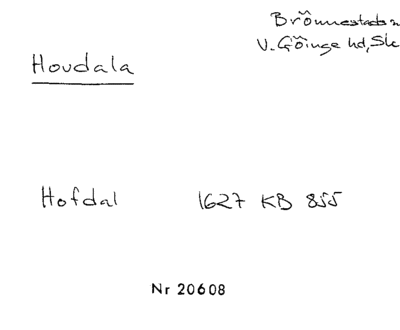 Brönnestads sn
V. Göinge hd, Sk
Hovdala
Hofdal 1627 KB 855
Nr 20608